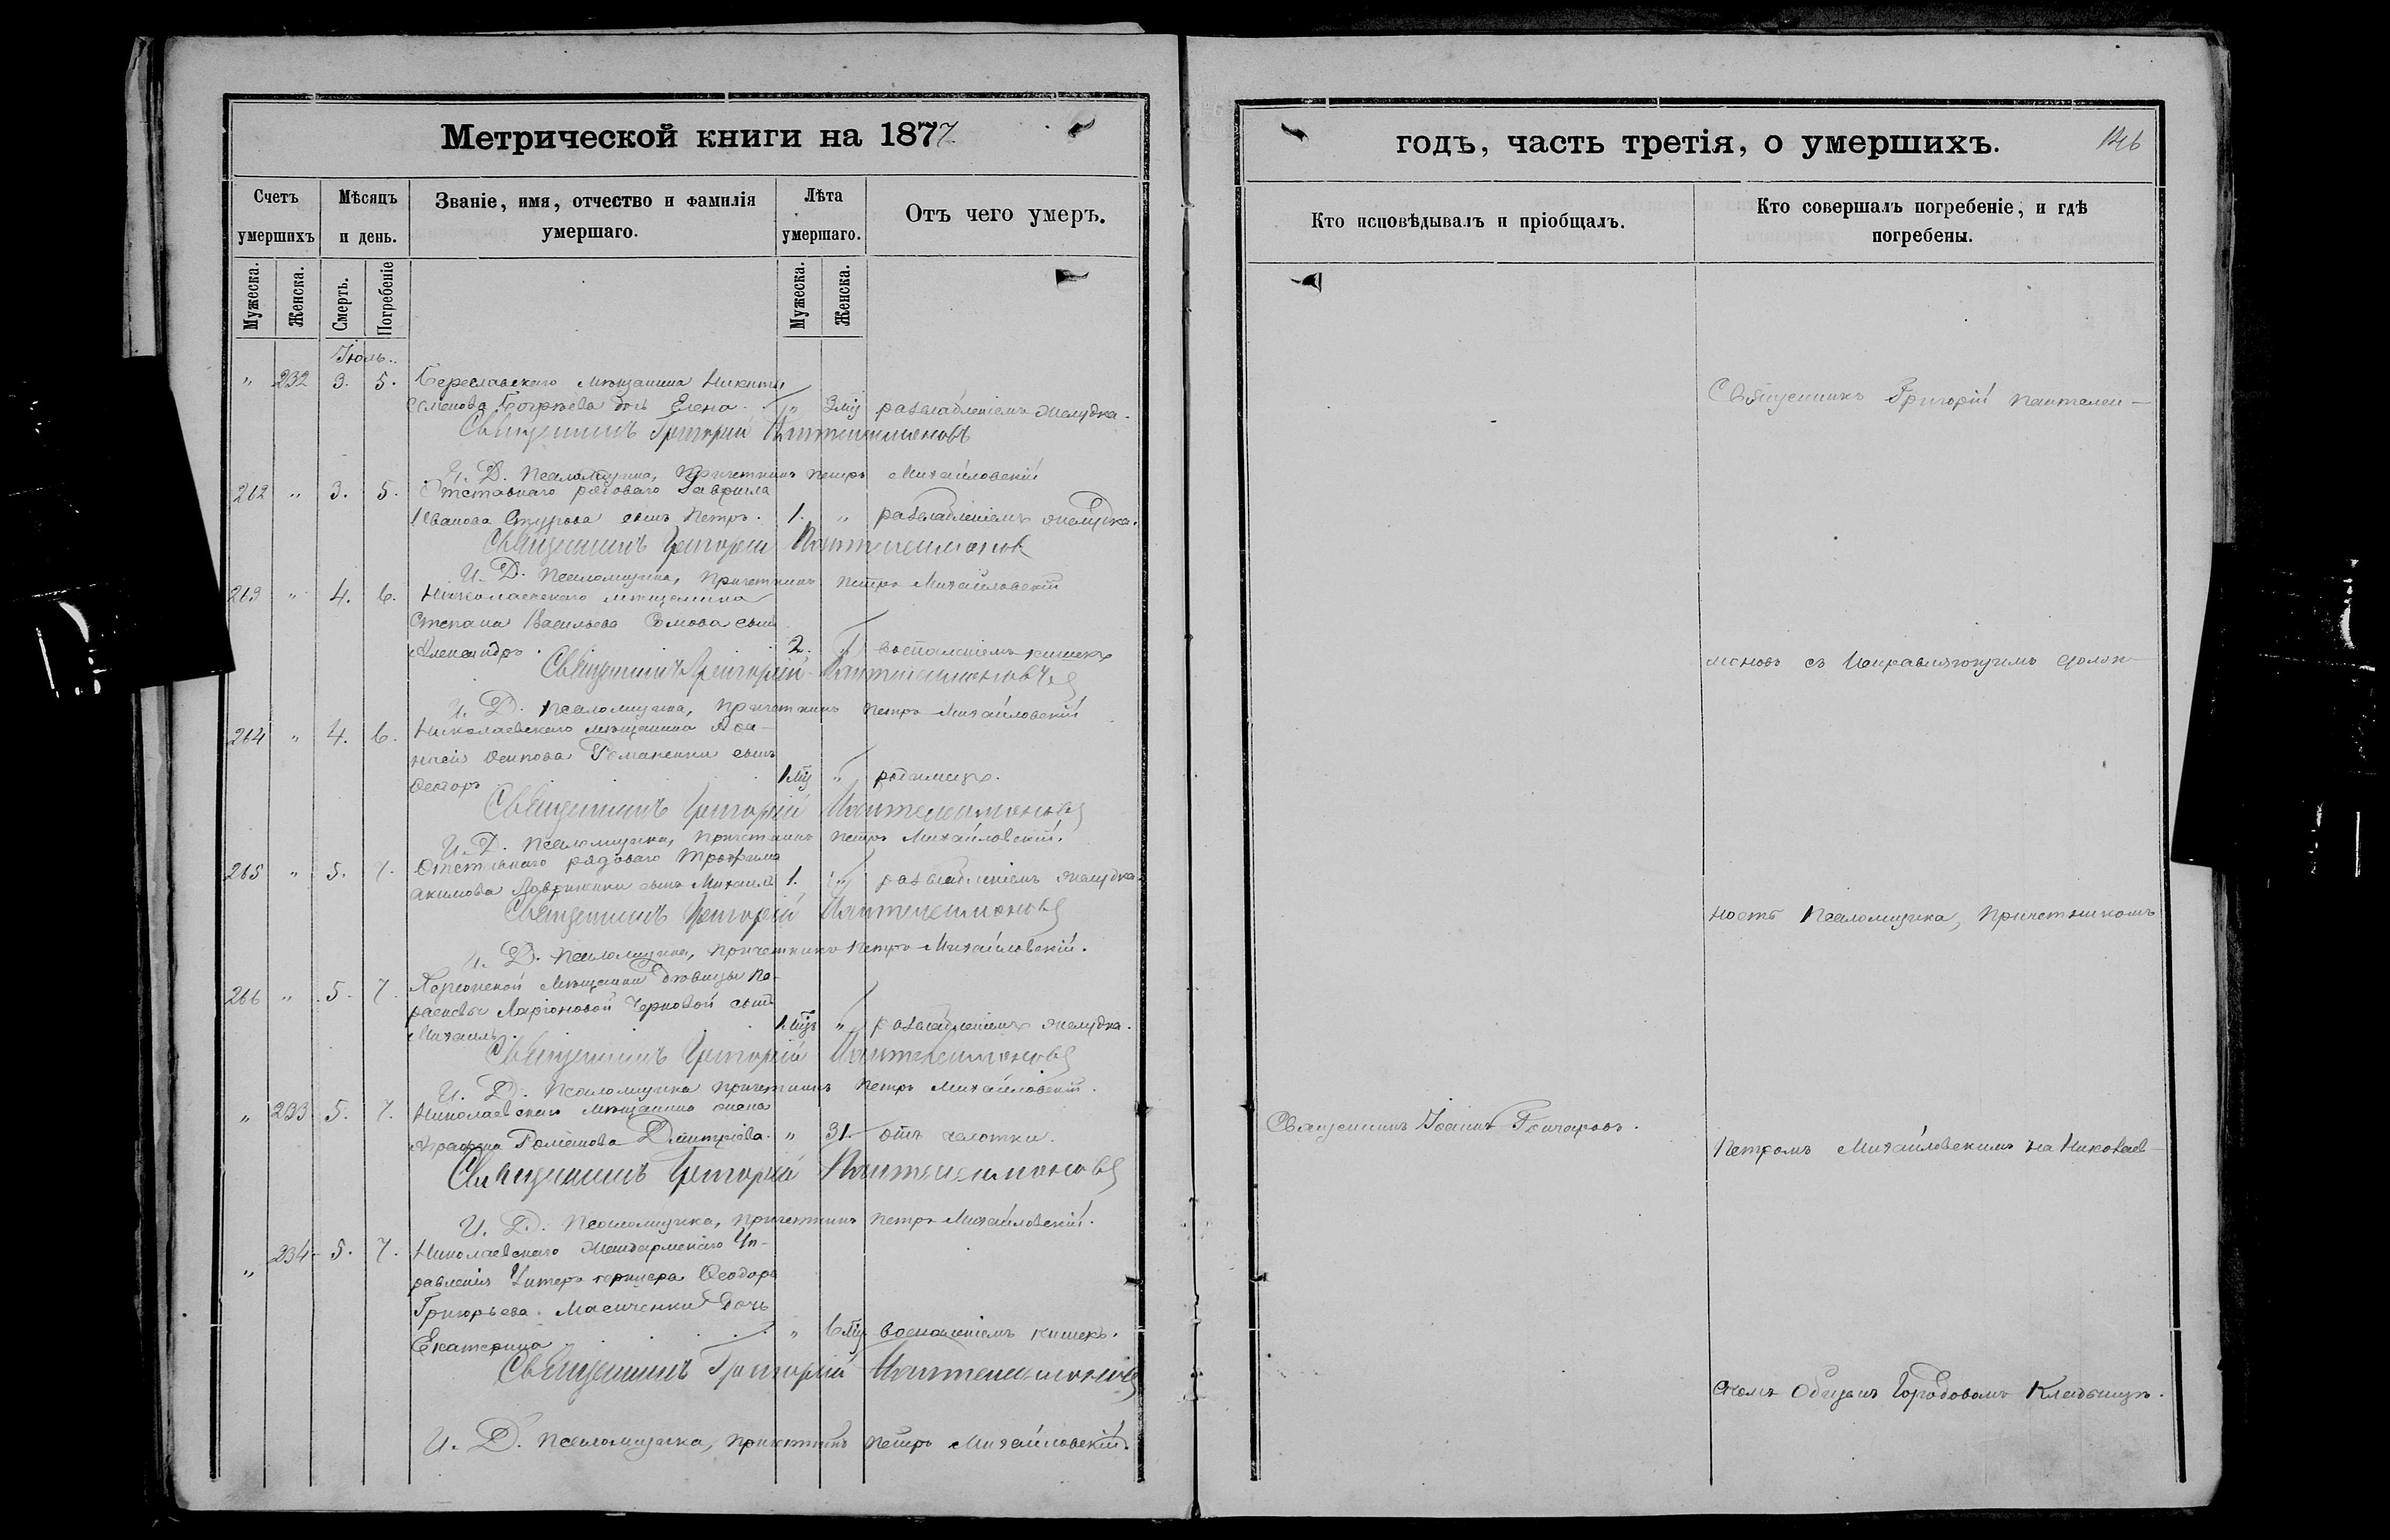 Метрической книги на 1877
годъ, часть третія, о умершихъ.
146
Счетъ умершихъ
Мѣсяцъ и день.
Званіе, имя, отчество и фамилія умершаго.
Лѣта умершаго.
Отъ чего умеръ.
Кто исповѣдывалъ и пріобщалъ.
Кто совершалъ погребеніе, и гдѣ погребены.
Мужеска. Женска. Смерть. Погребеніе Мужеска. Женска.
Іюль.
" 232 3. 5. Береславскаго мѣщанина Никиты
дочь Елена " разслабленіемъ желудка.
Священникъ Григорій Пантелеимоновъ
И. Д. Псаломщика, Причетникъ Петръ Михайловскій
262 " 3. 5. Отставнаго рядоваго Гаврила
Иванова сынъ Петръ. 1. " разслабленіемъ желудка.
Священникъ Григорій Пантелеимоновъ
И. Д. Псаломщика, Причетникъ Петръ Михайловскій
263 " 4. 6. Николаевскаго мѣщанина
Степана Васильева сынъ
Александръ. 2. " воспаленіемъ кишекъ
Священникъ Григорій Пантелеимоновъ
И. Д. Псаломщика, Причетникъ Петръ Михайловскій
264 " 4. 6. Николаевскаго мѣщанина Афа-
насія Осипова Романенки сынъ
Ѳеодоръ "  родимецъ.
Священникъ Григорій Пантелеимоновъ
И. Д. Псаломщика, Причетникъ Петръ Михайловскій.
265 " 5. 7. Отставнаго рядоваго Трофима
Акимова сынъ Михаилъ 1. " разслабленіемъ желудка.
Священникъ Григорій Пантелеимоновъ
И. Д. Псаломщика, Причетникъ Петръ Михайловскій.
266 " 5. 7. Херсонской мѣщанки дѣвицы Па-
раскевы Ларіоновой Черновой сынъ
Михаилъ. " разслабленіемъ желудка.
Священникъ Григорій Пантелеимоновъ
И. Д. Псаломщика Причетникъ Петръ Михайловскій.
" 233 5. 7. Николаевскаго мѣщанина жена
Дмитріева. " 31. отъ чахотки.
Священникъ Григорій Пантелеимоновъ
И. Д. Псаломщика, Причетникъ Петръ Михайловскій.
" 234 5. 7. Николаевскаго Жандармскаго Уп-
равленія Унтеръ Ѳеодора
Григорьева дочь
Екатерина " воспаленіемъ кишекъ.
Священникъ Григорій Пантелеимоновъ
И. Д. Псаломщика, Причетникъ Петръ Михайловскій.
Священникъ Іоаннъ Гончаровъ.
Священникъ Григорій Пантелеи-
моновъ съ Исправляющимъ долж-
ность Псаломщика, Причетникомъ
Петромъ Михайловскимъ на Николаев-
скомъ Общемъ Городовомъ Кладбищѣ.